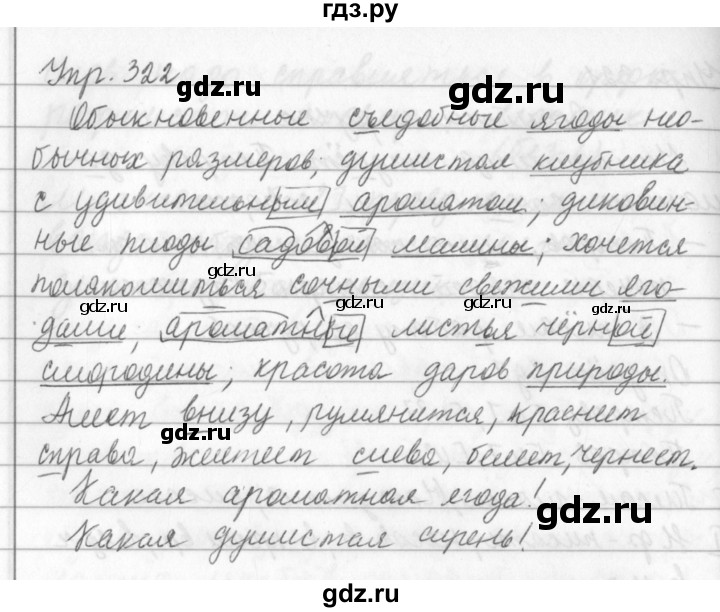 гдз.ру
Упр. 322
gdz.ru
gdz.ru
Обыкновенные съедобные ягоды нео-
бычных размеров; душистая клубника
с удивительным ароматом; диковин-
ные плоды садовой малины; хочется
gdz.ru
gdz.ru
полакомиться сочными свежими яго-
gdz.ru
gdz.ru
дами; ароматные листья чёрной
смородины; красота даров природы.
Алеет внизу, румянится, краснеет
gdz.ru
справа, желтеет слева, белеет, чернеет.
Какая ароматная ягода!
gdz.ru
gdz.ru
Какая душистая сирень!
gdz.ru